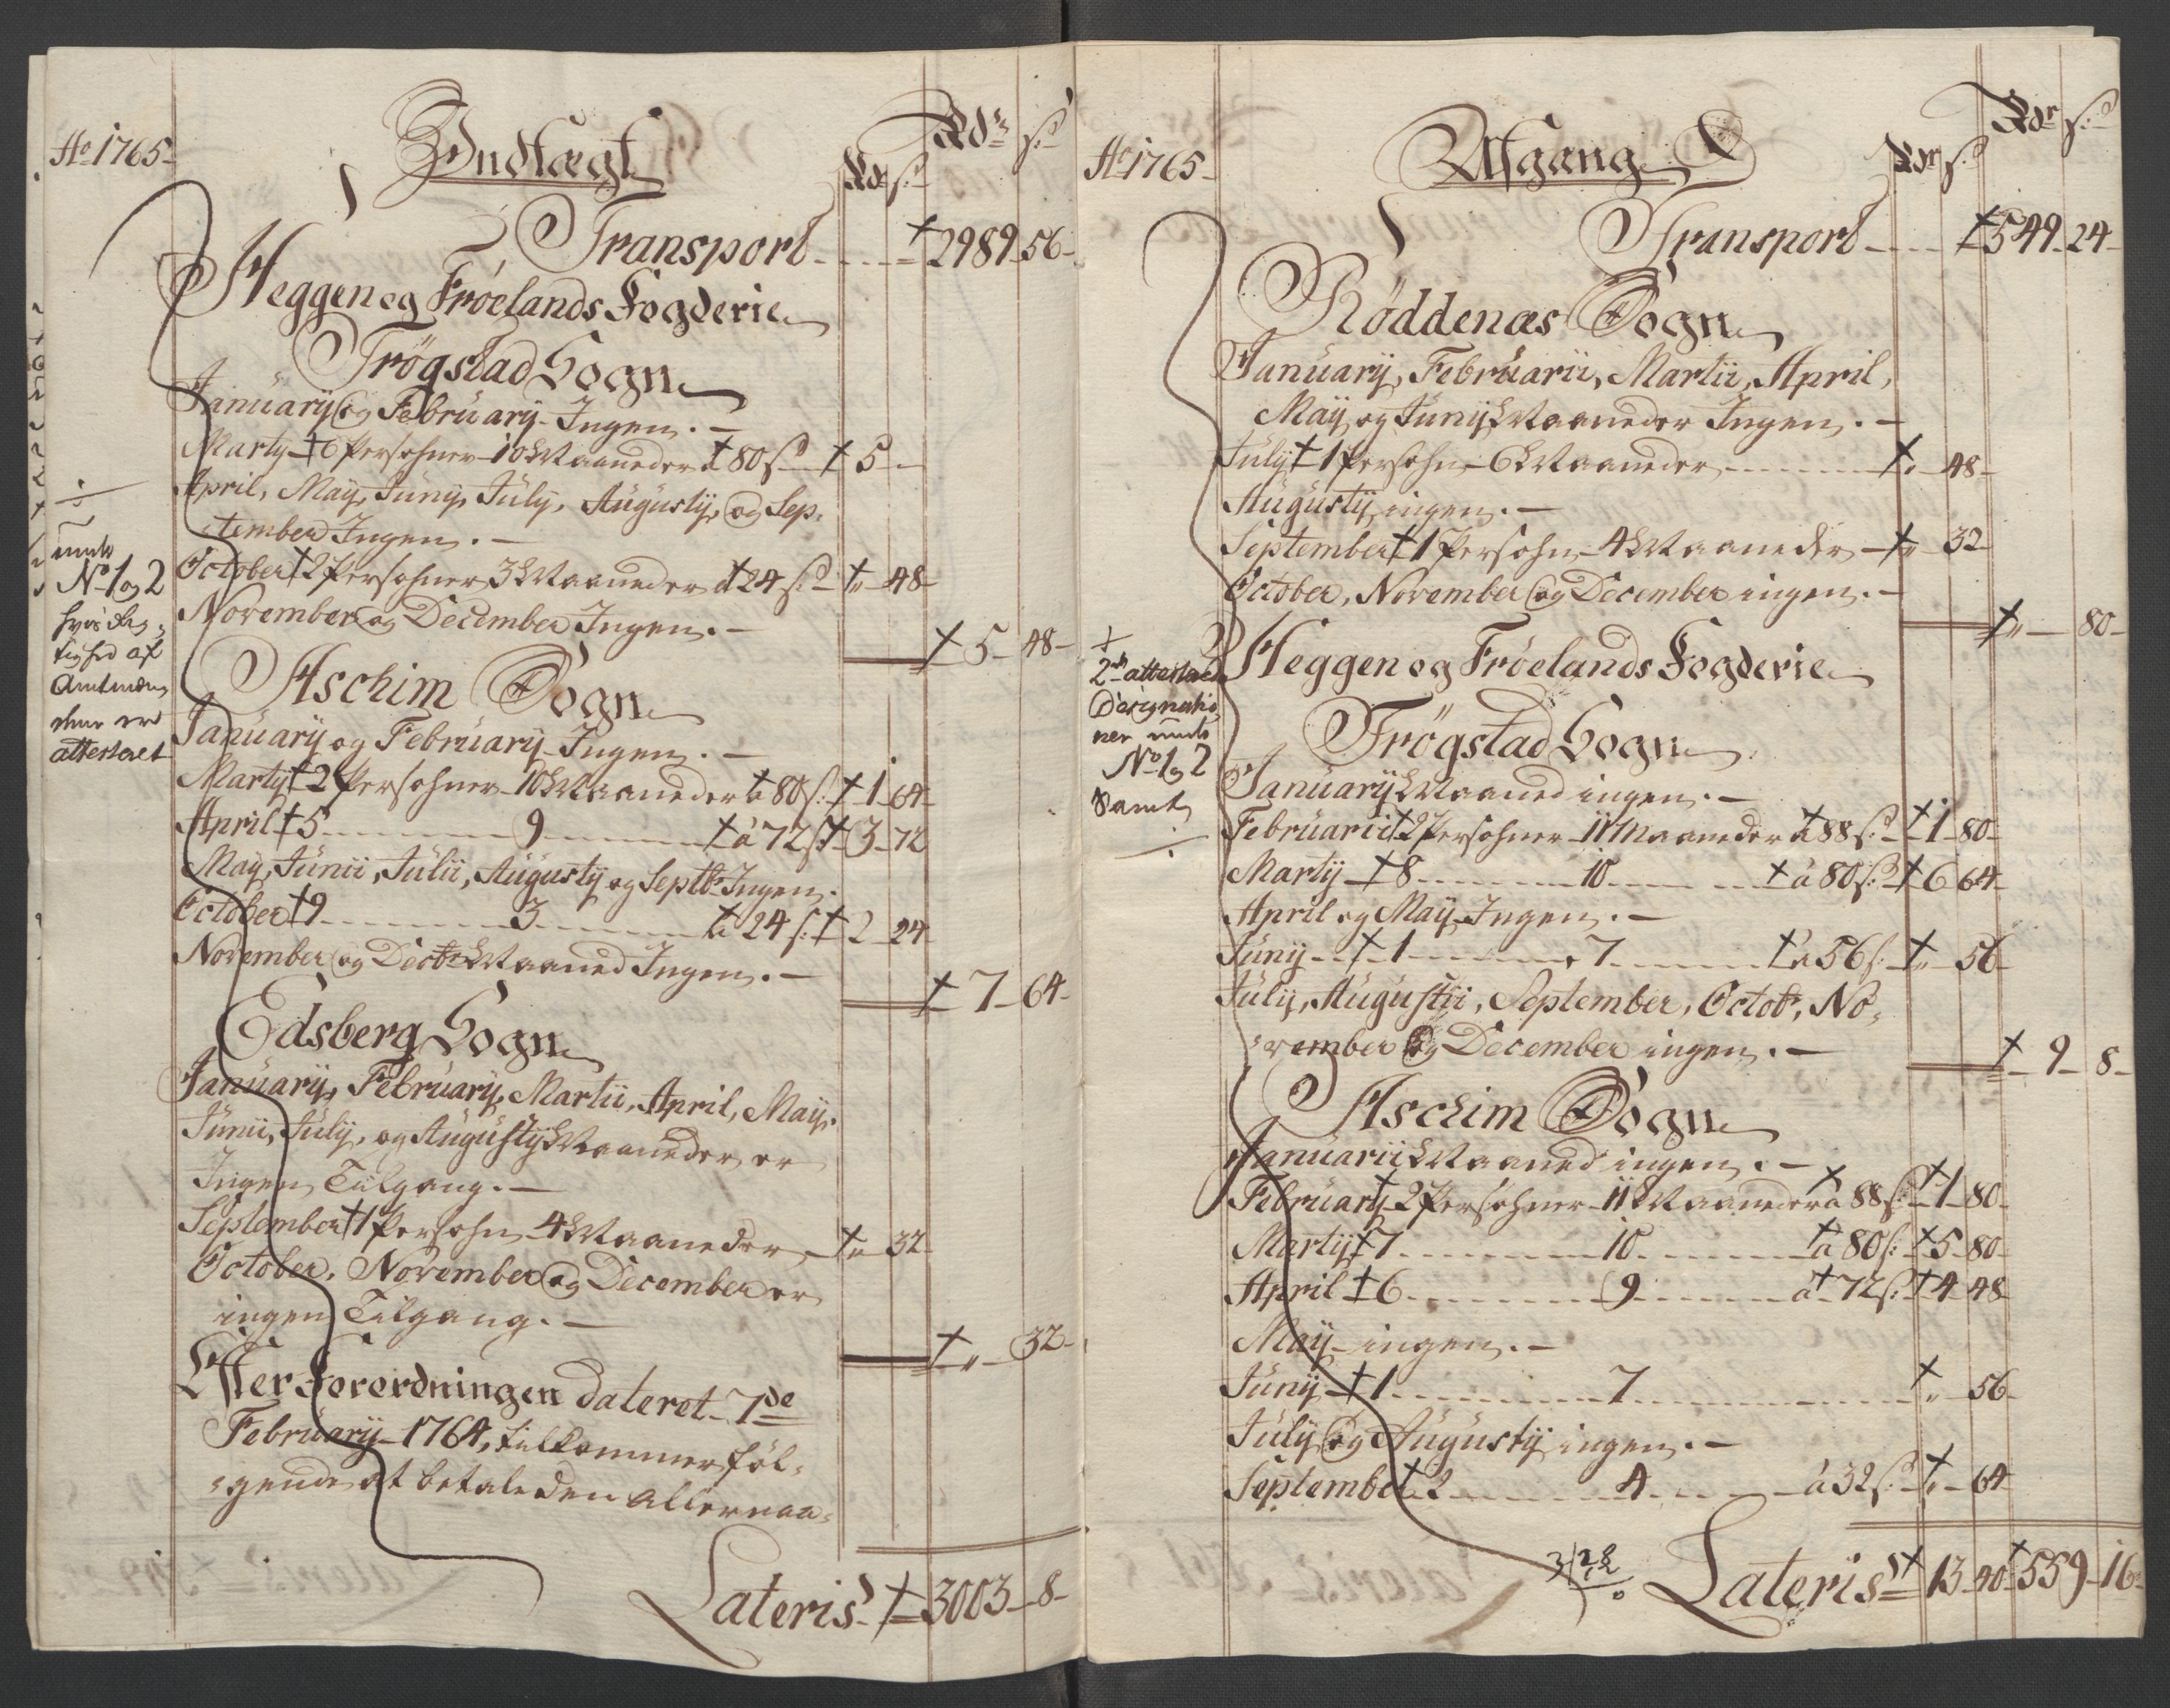 Ao 1765
Indtægt
Rdr s:
Rdr s:
Transport 2989 56
Heggen og Fröelands Fogderie
Trögstad Sogn
Januarij og Februarij Ingen.
Martij 6 Persohner 10 Maaneder á 80 s: 5
April, Maij, Junij, Julij, Augustij, og Sep-
tember Ingen.
October 2 Persohner 3 Maaneder á 24 s: " 48
November og December Ingen.
5 48
Aschim Sogn
Januarij og Februarij Ingen.
Martij 2 Persohner 10 Maaneder á 80 s: 1 64
April 5 9 á 72 s: 3 72
Maij, Junii, Julii, Augustij og Septbr Ingen.
October 9 3 á 24 s: 2 24
November og Decbr Maaned Ingen.
7 64
Edsberg Sogn
Januarij, Februarij, Martii, April, Maij,
Junii, Julij, og Augustij Maaneder er
Ingen Tilgang.
September 1 Persohn 4 Maaneder " 32
October, November og December er
ingen Tilgang.
" 32
Efter Forordningen dateret 7de
Februarij 1764, tilkommer föl-
gende at betale den Allernaa-
Lateris 3003 8
No 1 og 2
Rigtighed af
Amtman-
den er
attesteret
Ao 1765
Afgang
Rdr s:
Rdr s:
Transport 549 24
Röddenæs Sogn
Januarij, Februarii, Martii, April,
Maij og Junij Maaneder Ingen.
Julij 1 Persohn 6 Maaneder " 48
Augustij ingen.
September 1 Persohn 4 Maaneder " 32
October, November og December ingen.
" 80
Heggen og Fröelands Fogderie
Trögstad Sogn
Januarij Maaned ingen.
Februarii 2 Persohner 11 Maaneder á 88 s: 1 80
Martij 8 10 á 80 s: 6 64
April og Maij Ingen.
Junij 1 7 á 56 s: " 56
Julij, Augustii, September, Octobr, No-
vember og December ingen.
9 8
Aschim Sogn
Januarii Maaned ingen.
Februarij 2 Persohner 11 Maaneder á 88 s: 1 80
Martij 7 10 á 80 s: 5 80
April 6 9 á 72 s: 4 48
Maij ingen.
Junij 1 7 " 56
Julij og Augustij ingen.
September 2 4 á 32 s: " 64
Lateris 13 40 559 16
2de attesterede
Designatio-
ner
No 1 og 2
Samt